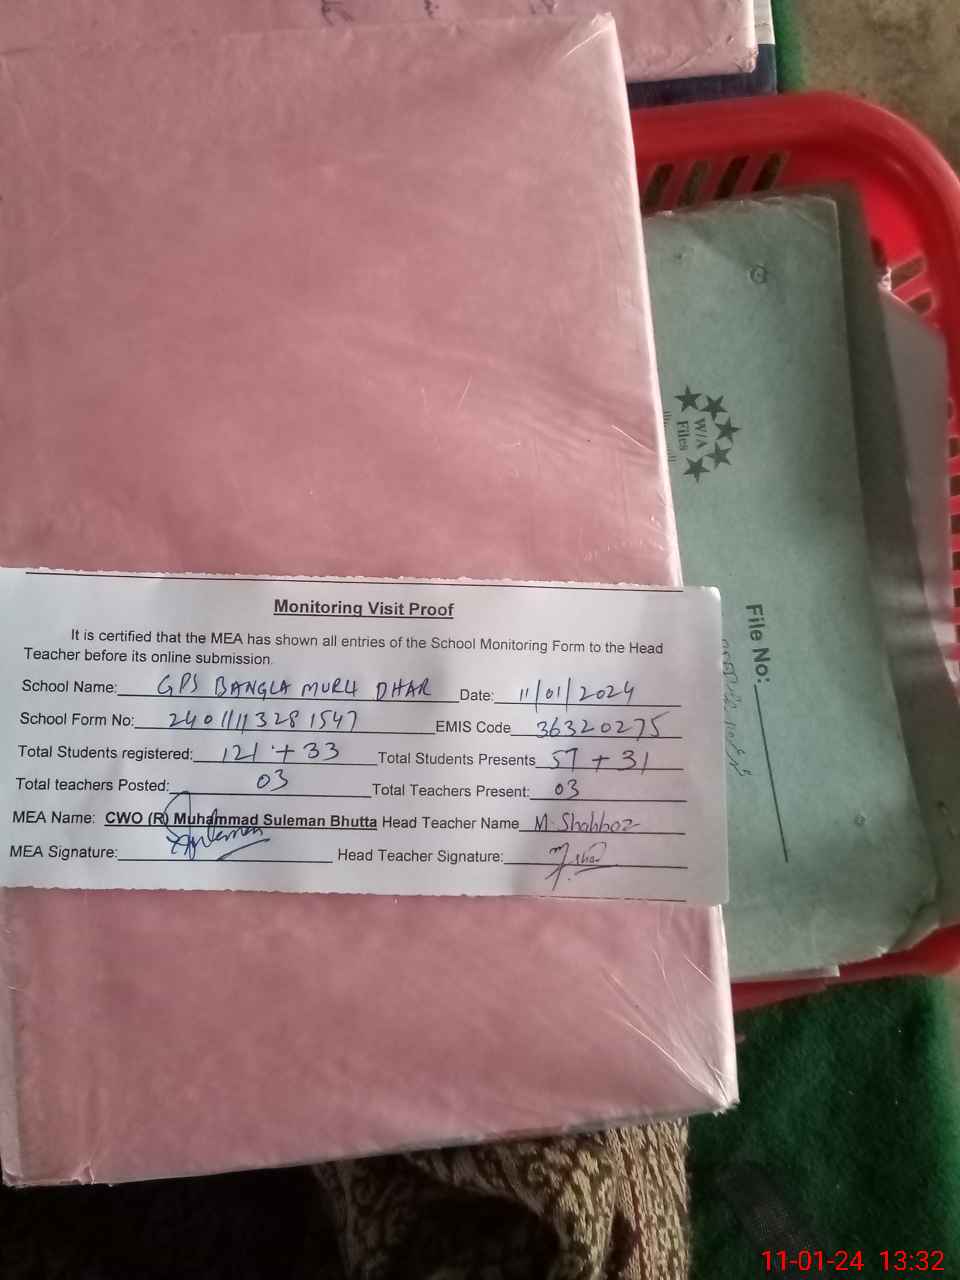 Monitoring Visit Proof
It is certified that the MEA has shown all entries of the School Monitoring Form to the Head
Teacher before its online submission.
School Name: GPS BANGLA MURLI DHAR Date: 11/01/2024
School Form No: 24011113281547 EMIS Code 36320275
Total Students registered: 121 + 33 Total Students Presents 57 + 31
Total teachers Posted: 03 Total Teachers Present: 03
MEA Name: CWO (R) Muhammad Suleman Bhutta Head Teacher Name M. Shahbaz
MEA Signature: Head Teacher Signature:
W/A
Files
File No:
11-01-24 13:32